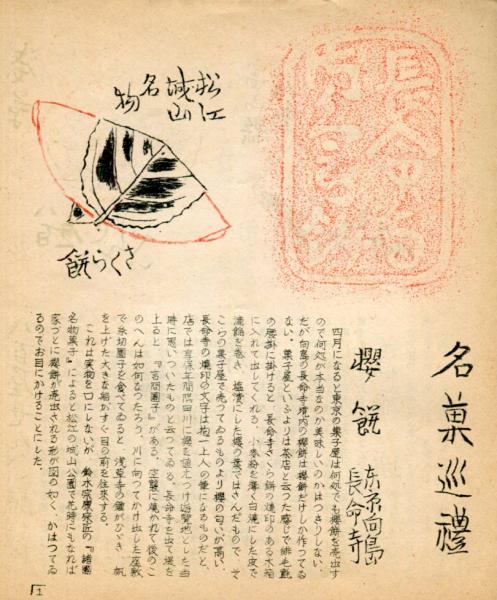 名菓巡禮
櫻餅
東京向島
長命寺
四月になると東京の菓子屋は何処でも櫻餅を売出す
ので何処が本当なのか美味しいのかはつきりしない。
だが向島の長命寺境内の櫻餅は櫻餅だけしか作つてゐ
ない。菓子屋といふよりは茶店と云つた感じで緋毛氈
の腰掛に掛けると、長命寺さくら餅の焼印のある木箱
に入れて出してくれる。小麦粉を薄く白焼にした皮で
漉餡を巻き、塩漬にした櫻の葉ではさんだもので、そ
こらの菓子屋で売つてゐるものより櫻の匂いが高い。
長命寺の焼印の文字は抱一上人の筆になるものだと、
店では享保年間隅田川に櫻を植えつけ遊覧地とした当
時に思いついたものと云つてゐる。長命寺を出て堤を
上ると『言問團子』がある。空襲に焼かれて後のこ
のへんは如何なつたろう。川に向つてかけ出した座敷
で糸切團子を食べてゐると、浅草寺の鐘がひゞき、帆
を上げた大きな船がすぐ目の前を往来する。
これは実物を口にしないが、鈴木宗康宗匠の『諸國
名物菓子』によると松江の城山公園で花時にもなれば
家ごとに櫻餅が売出される形が図の如く、かはつてゐ
るのでお目にかけることにした。
松江
城山
名物
さくら餅
1